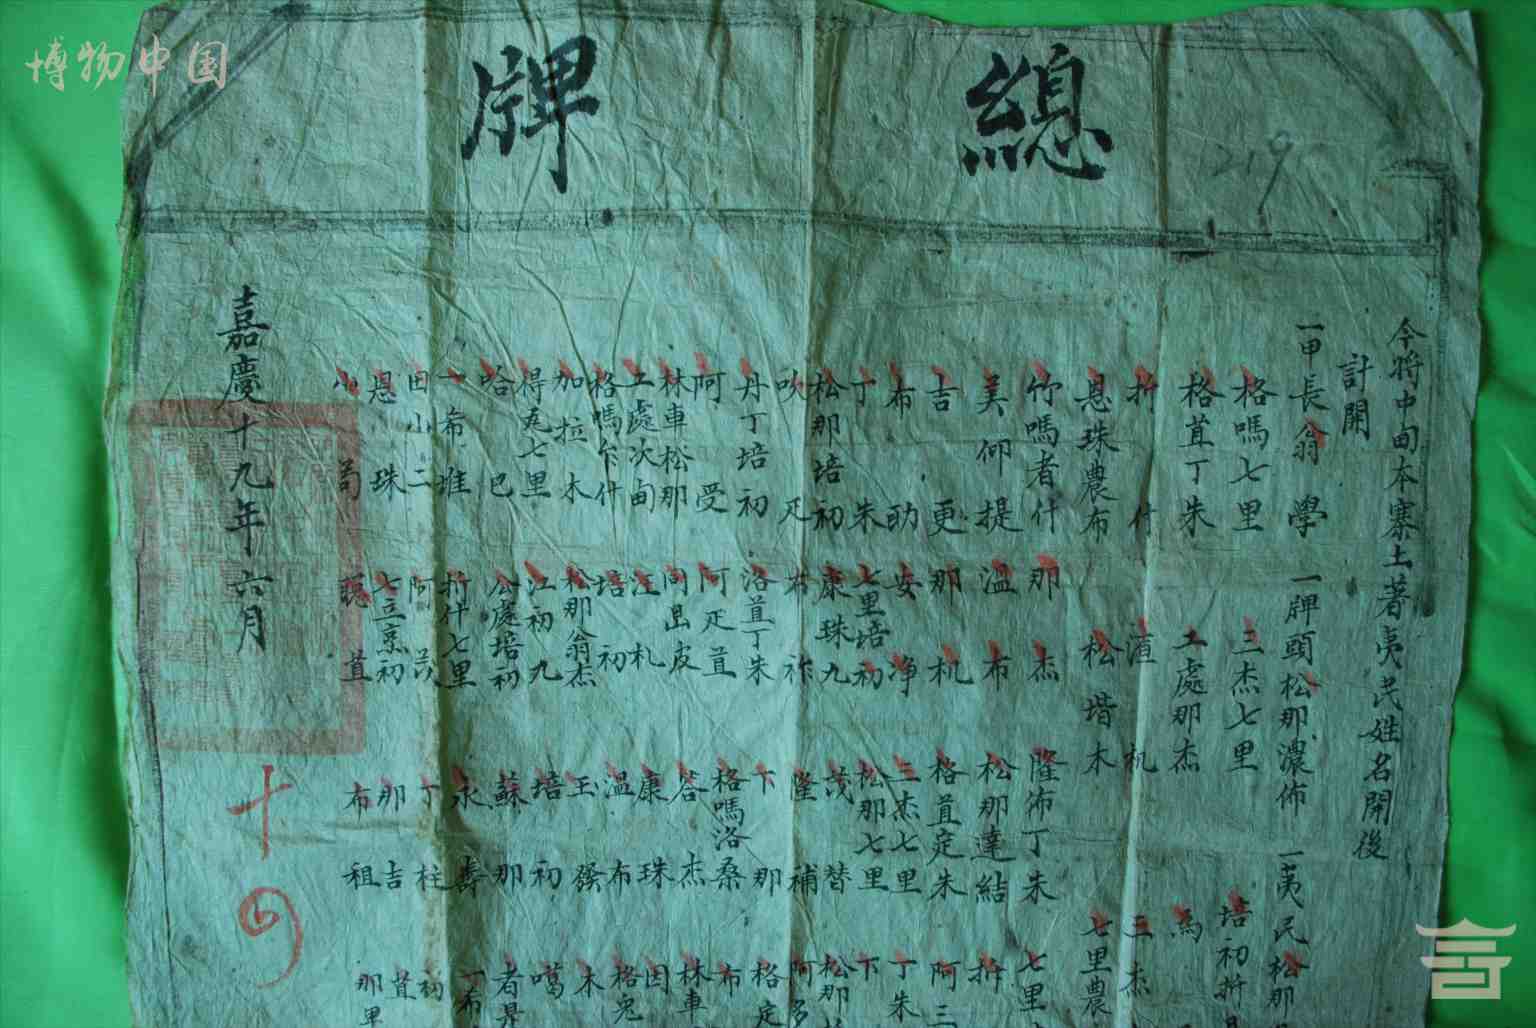 博物中国
總牌
219
今将中甸本寨土著夷民姓名開後
計開
一甲長翁學 一牌頭松那濃佈 一夷民松那
格嗎七里 三杰七里 培初折
格苴丁朱 工處那杰
折什
恩珠農布 松堦木 七里農
竹嗎者什 那杰 隆佈丁朱 七里
美仰提 溫布 松那達結 折
吉更 那机 格苴定朱 阿三
布助 安净 三杰七里 丁朱
丁朱 七里培初 松那七里 下
松那培初 康珠九 茂替 松那
吹疋 布祚 隆補 阿多
丹丁培初 洛苴丁朱 下那 格定
阿受 阿疋苴 格嗎洛桑 布
林車松那 答杰 林車
工處次甸 江札 康珠 因
格嗎乍什 培初 溫布 格兔
加拉木 松那翁杰 玉發 木
得疋七里 江初九 培初 噶
哈巴 公處培初 蘇那 者是
一希堆 折什七里 永壽 一希
田小二 阿茂 丁柱 初
恩珠 那吉 苴
小苟 聰苴 布祖 那里
嘉慶十九年六月
十